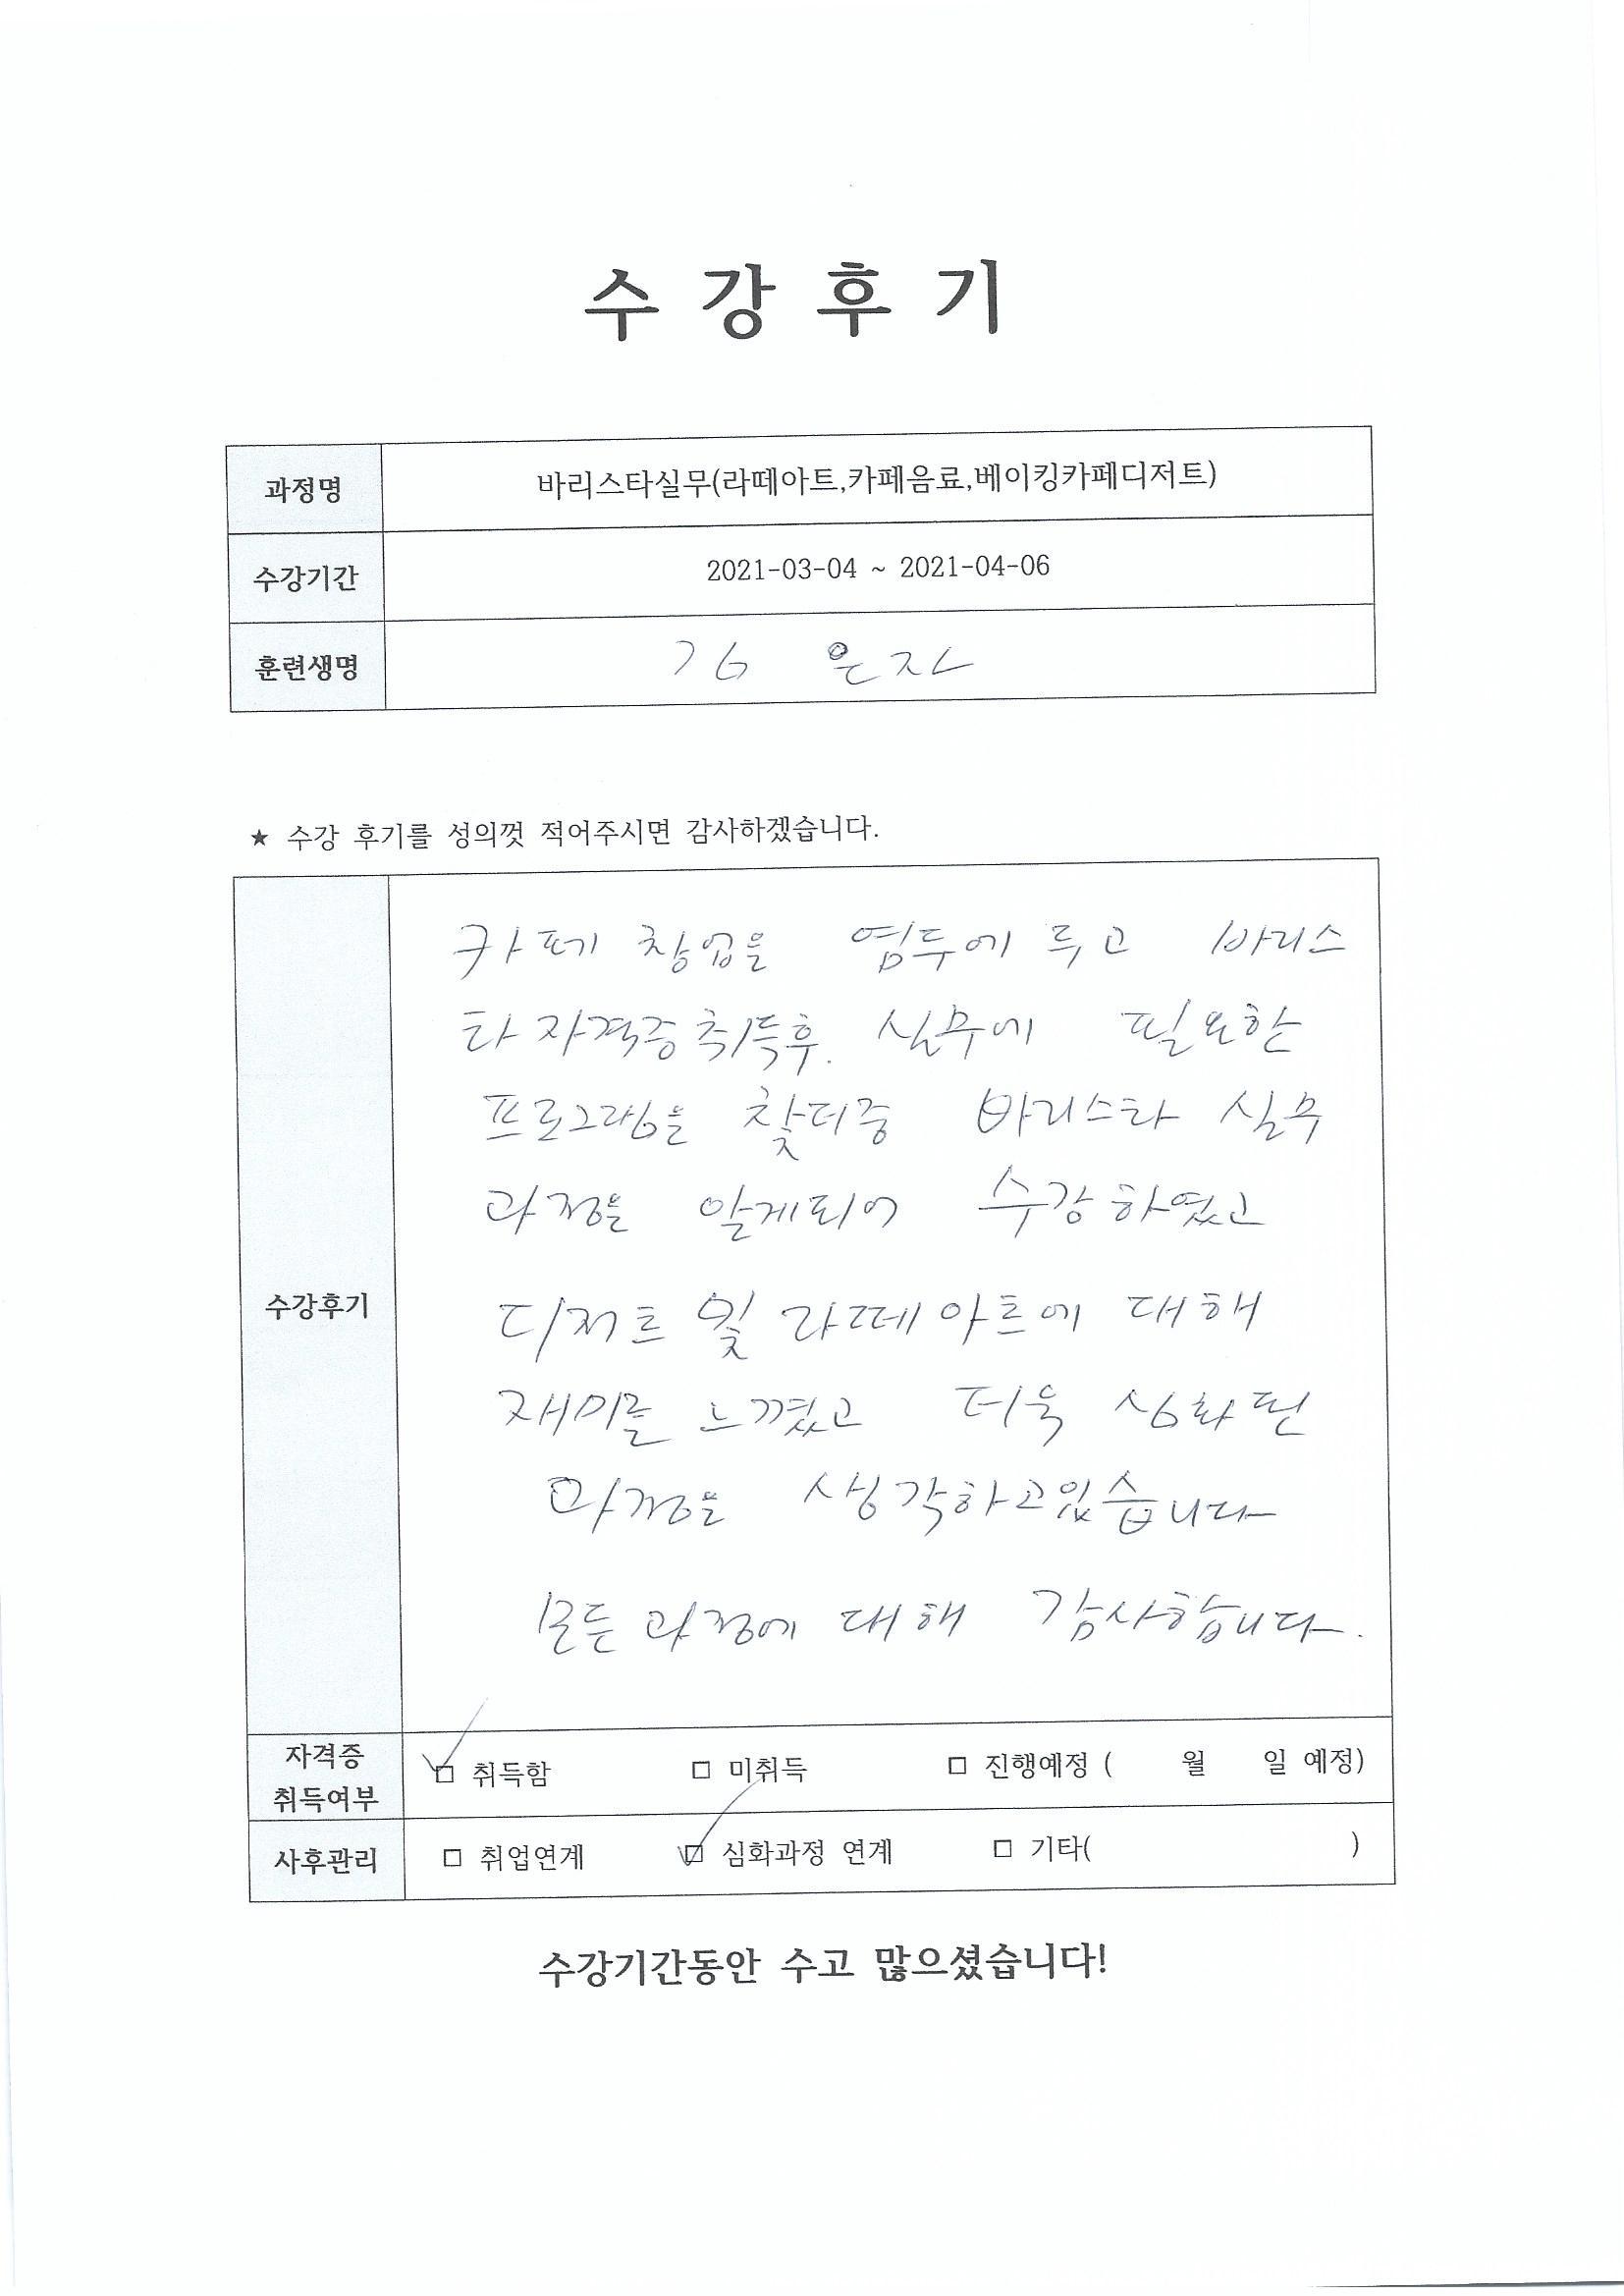 수 강 후 기
과정명 바리스타실무(라떼아트,카페음료,베이킹카페디저트)
수강기간 2021-03-04 ~ 2021-04-06
훈련생명 김 은자
★ 수강 후기를 성의껏 적어주시면 감사하겠습니다.
수강후기
카페 창업을 염두에 두고 바리스
타 자격증취득후. 실무에 필요한
프로그램을 찾더중 바리스타 실무
과정을 알게되어 수강하였고
디저트 및 라떼아트에 대해
재미를 느꼈고 더욱 심화된
과정을 생각하고있습니다
모든 과정에 대해 감사합니다.
자격증
취득여부 ☑ 취득함 □ 미취득 □ 진행예정 ( 월 일 예정)
사후관리 □ 취업연계 ☑ 심화과정 연계 □ 기타( )
수강기간동안 수고 많으셨습니다!